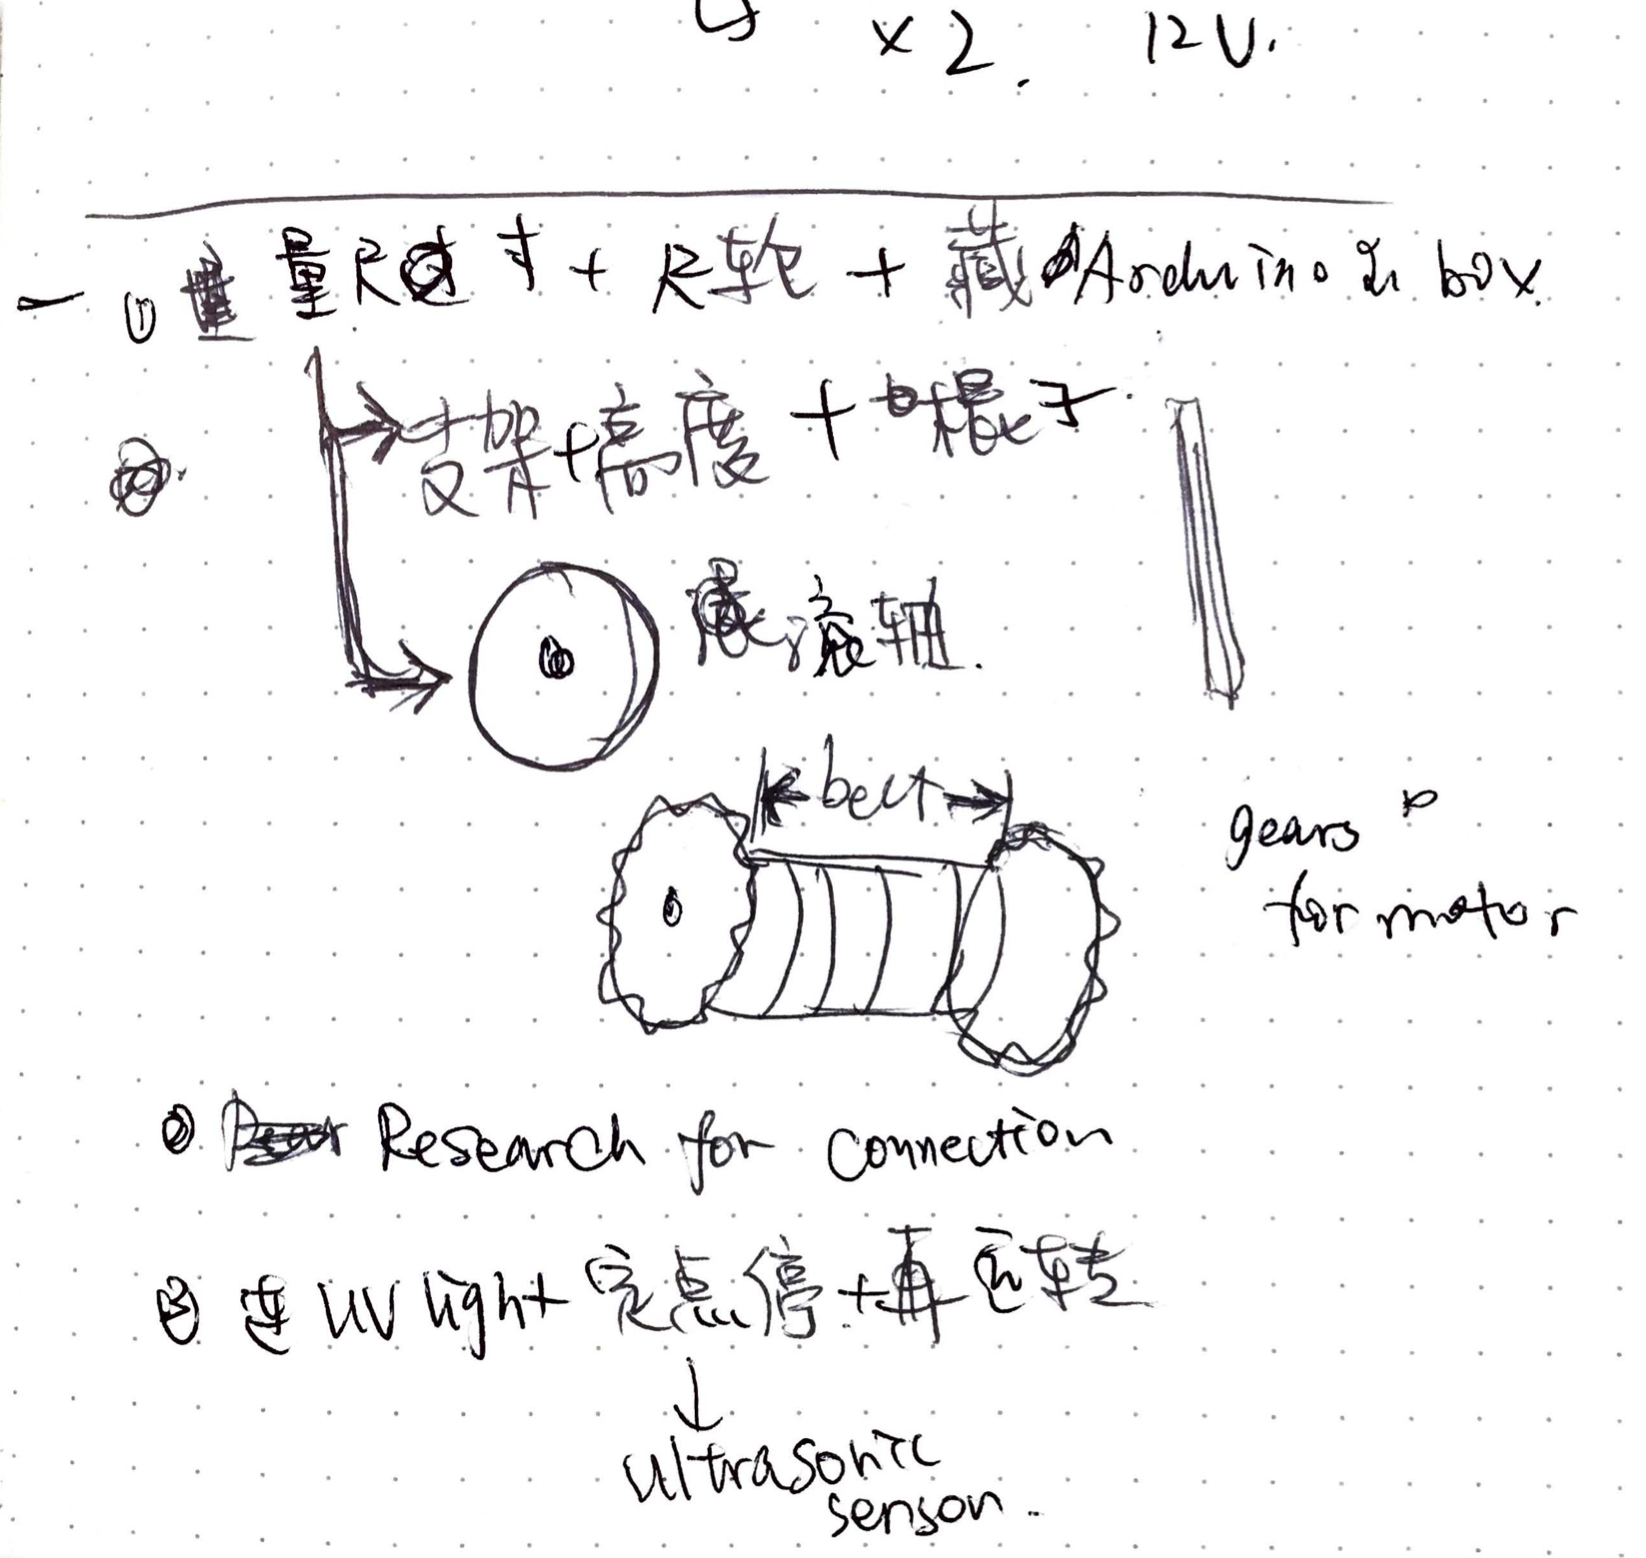 x2. 12V.
一 ① 量尺寸 + 尺轮 + 藏Arduino in box.
支架+高度 + 棍子
滚轴.
belt
gears
for motor
② Research for connection
③ 连 UV light + 定点停 + 再运转
↓
ultrasonic
sensor.